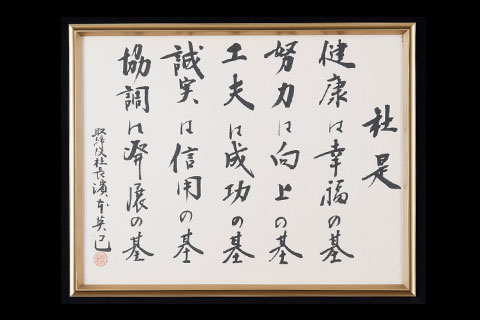 社是
健康は幸福の基
努力は向上の基
工夫は成功の基
誠実は信用の基
協調は発展の基
取締役社長濱本英巳